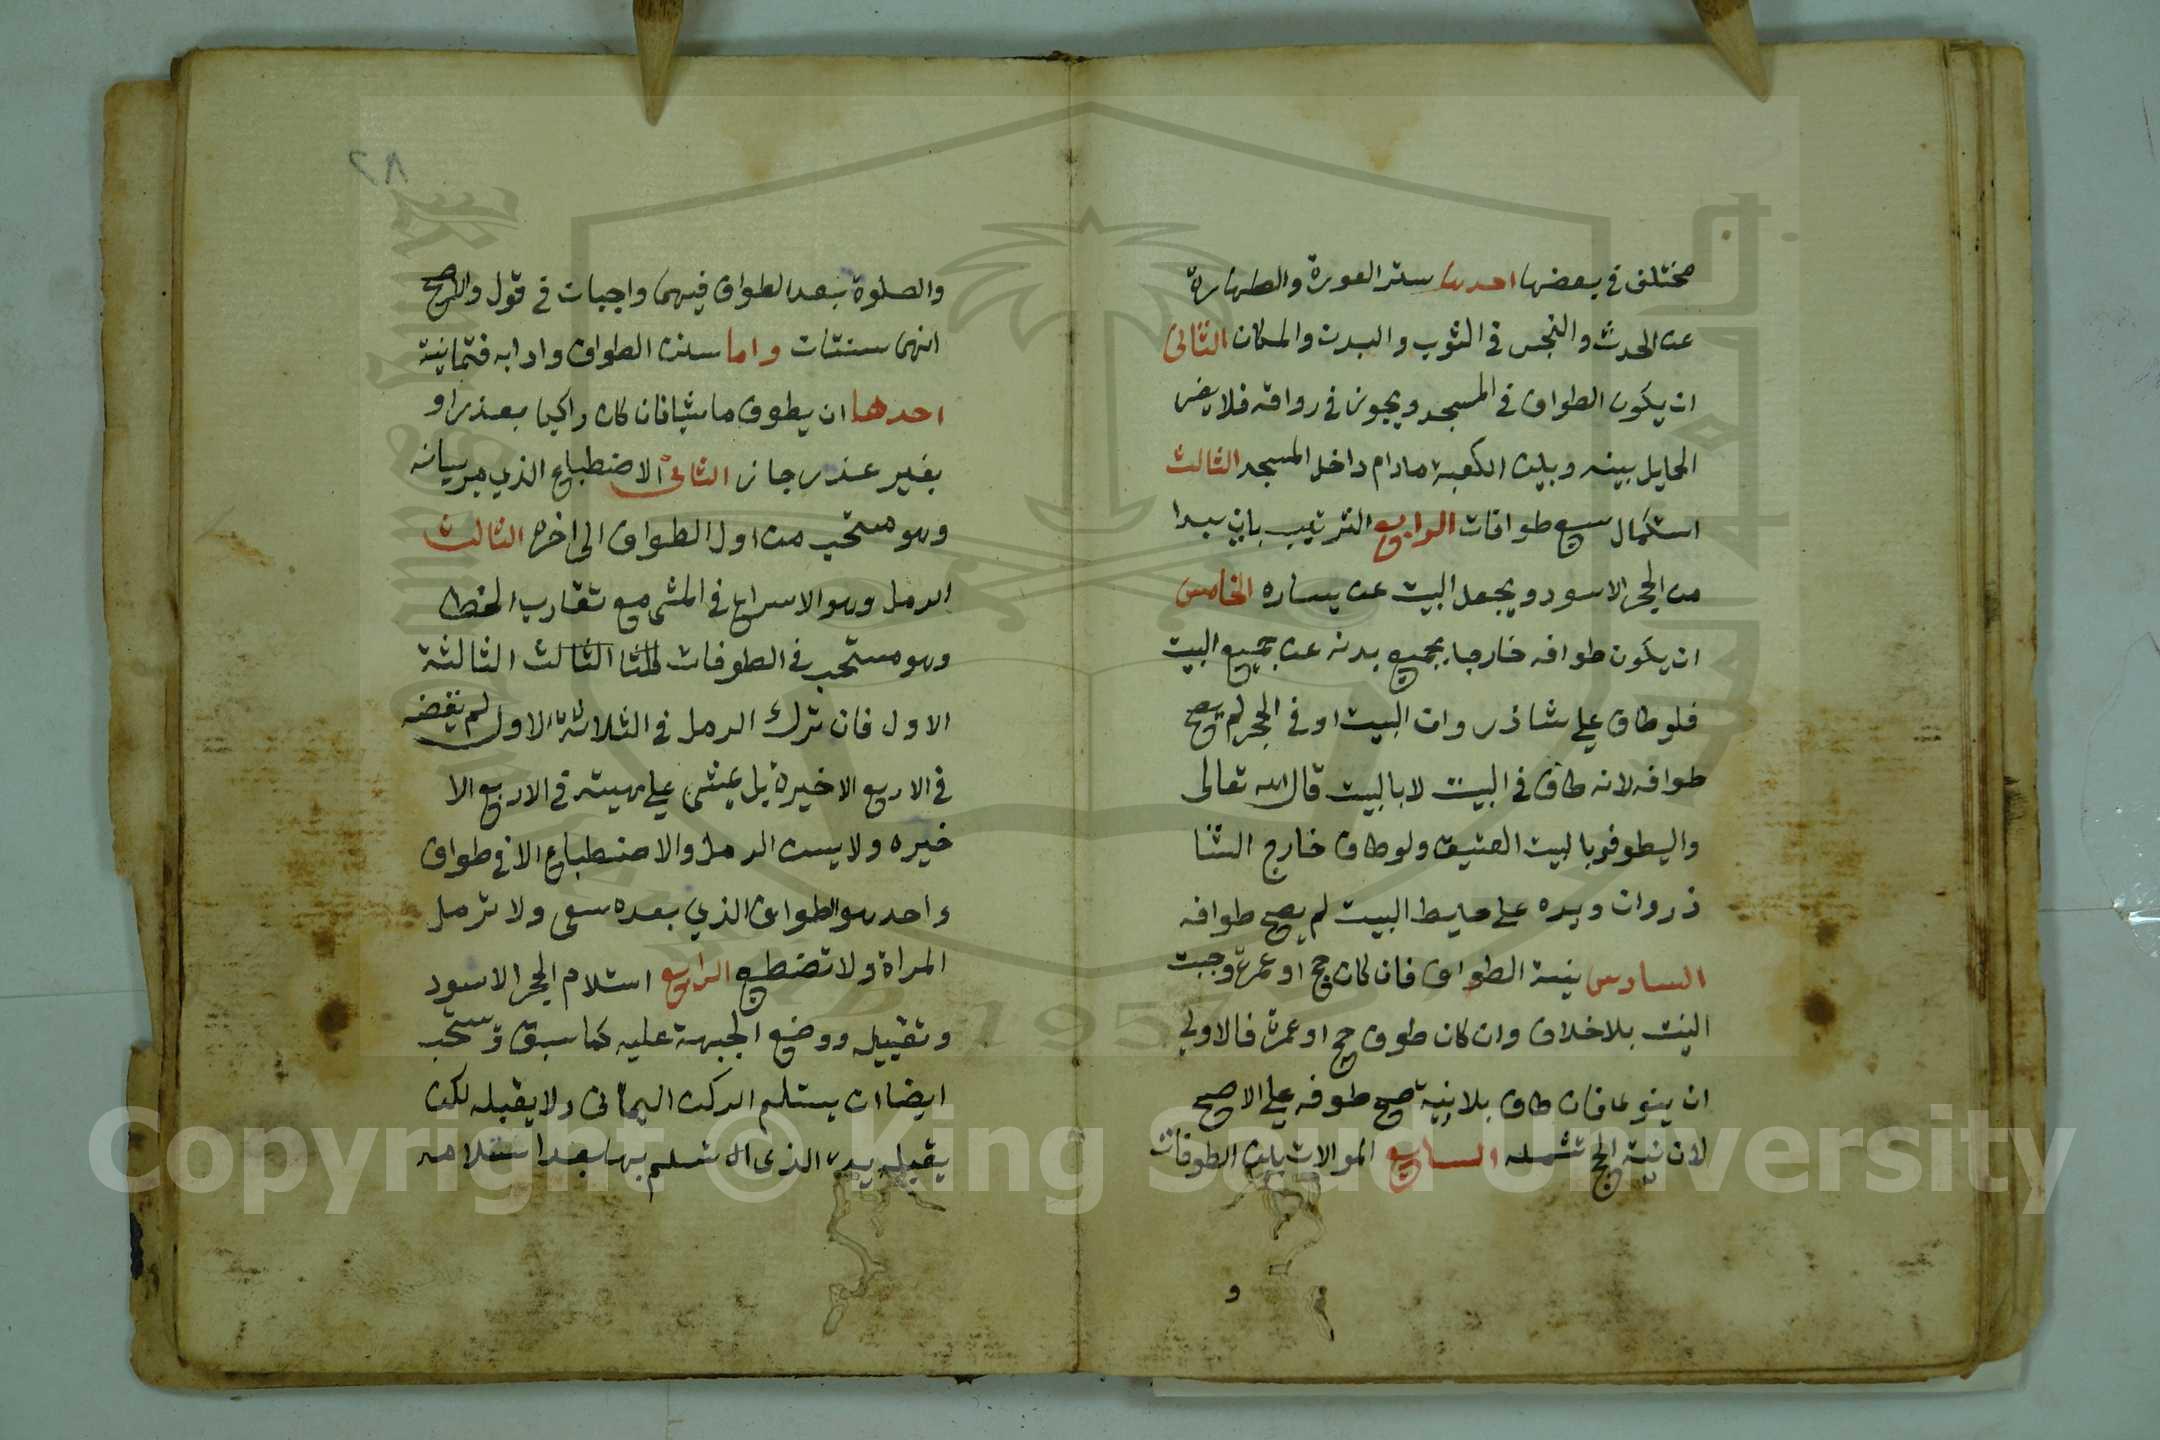 مختلف في بعضها احدها ستر العورة والطهارة
عن الحدث والنجس في الثوب والبدن والمكان الثاني
ان يكون الطواف في المسجد ويجوز في رواقه فلا يضر
الحايل بينه وبين الكعبة مادام داخل المسجد الثالث
استكمال سبع طوافات الرابع الترتيب بان يبدا
من الحجر الاسود ويجعل البيت عن يساره الخامس
ان يكون طوافه خارجا بجميع بدنه عن جميع البيت
فلو طاف علي شاذروان البيت او في الحجر لم يصح
طوافه لانه طاف في البيت لا بالبيت قال الله تعالى
واليطوفو بالبيت العتيق ولو طاف خارج الشا
ذروان ويده على حايط البيت لم يصح طوافه
السادس نية الطواف فان كان حج او عمرة وجبت
النيت بلا خلاف وان كان طوف حج او عمرة فالاولي
ان ينوي فان طاف بلا نية صح طوفه علي الاصح
لان نية الحج تشمله السابع الموالات بين الطوفات
و
٨٢
والصلوة بعد الطواف فيهما واجبات في قول والاصح
انهى سنتات واما سنن الطواف وادابه فثمانية
احدها ان يطوف ماشيا فان كان راكبا بعذر او
بغير عذر جاز الثاني الاضطباع الذي مر بيانه
وهو مستحب من اول الطواف الى اخره الثالث
الرمل وهو الاسراع في المشي مع تقارب الخطا
وهو مستحب في الطوفات الثالث الثالثة
الاول فان ترك الرمل في الثلاثة الاول لم يقضه
في الاربع الاخيرة بل يمشي علي هيته في الاربع الا
خيره ولا يسن الرمل والاضطباع الا في طواف
واحد هو الطواف الذي بعده سعى ولا ترمل
المراة ولا تضطبع الرابع استلام الحجر الاسود
وتقبيله ووضع الجبهة عليه كما سبق وتستحب
ايضا ان يستلم الركن اليماني ولا يقبله لكن
يقبل يده الذي استلم بها بعد استلامه
Copyright © King Saud University
1957